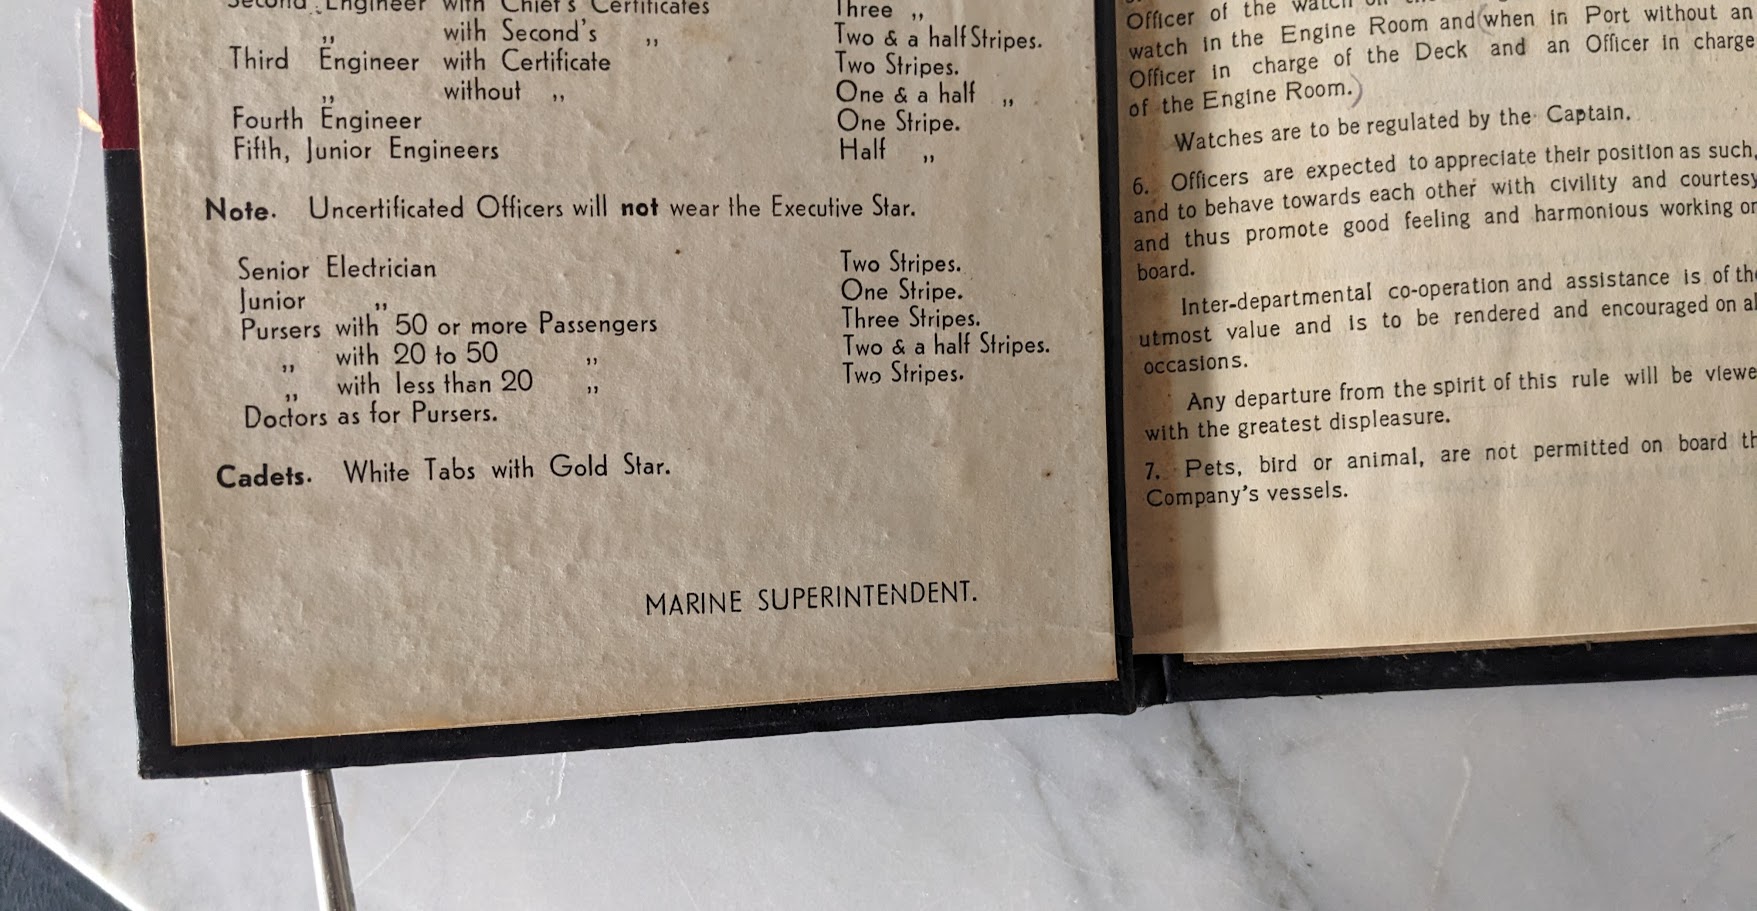 Second Engineer with Chief's Certificates Three ,,
,, with Second's ,, Two & a half Stripes.
Third Engineer with Certificate Two Stripes.
,, without ,, One & a half ,,
Fourth Engineer One Stripe.
Fifth, Junior Engineers Half ,,
Note. Uncertificated Officers will not wear the Executive Star.
Senior Electrician Two Stripes.
Junior ,, One Stripe.
Pursers with 50 or more Passengers Three Stripes.
,, with 20 to 50 ,, Two & a half Stripes.
,, with less than 20 ,, Two Stripes.
Doctors as for Pursers.
Cadets. White Tabs with Gold Star.
MARINE SUPERINTENDENT.
Officer of the watch on
watch in the Engine Room and (when in Port without an
Officer in charge of the Deck and an Officer in charge
of the Engine Room.)
Watches are to be regulated by the Captain.
6. Officers are expected to appreciate their position as such,
and to behave towards each other with civility and courtesy
and thus promote good feeling and harmonious working on
board.
Inter-departmental co-operation and assistance is of the
utmost value and is to be rendered and encouraged on al
occasions.
Any departure from the spirit of this rule will be viewe
with the greatest displeasure.
7. Pets, bird or animal, are not permitted on board th
Company's vessels.